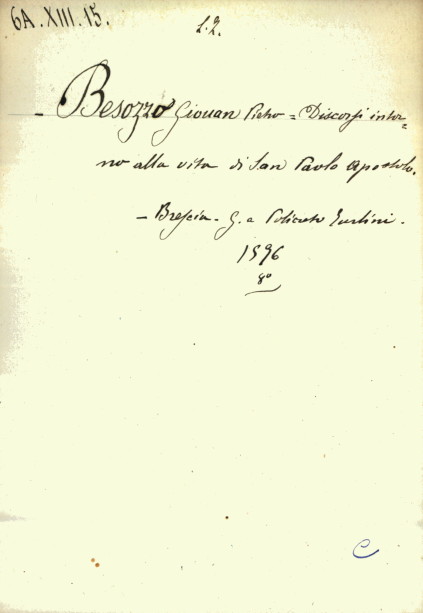 6A.XIII.15.
L.2.
- Besozzo Giouan Pietro = Discorsi intor=
no alla vita di San Paolo Apostolo.
- Brescia. G. a Policreto Turlini.
1596
8º
C